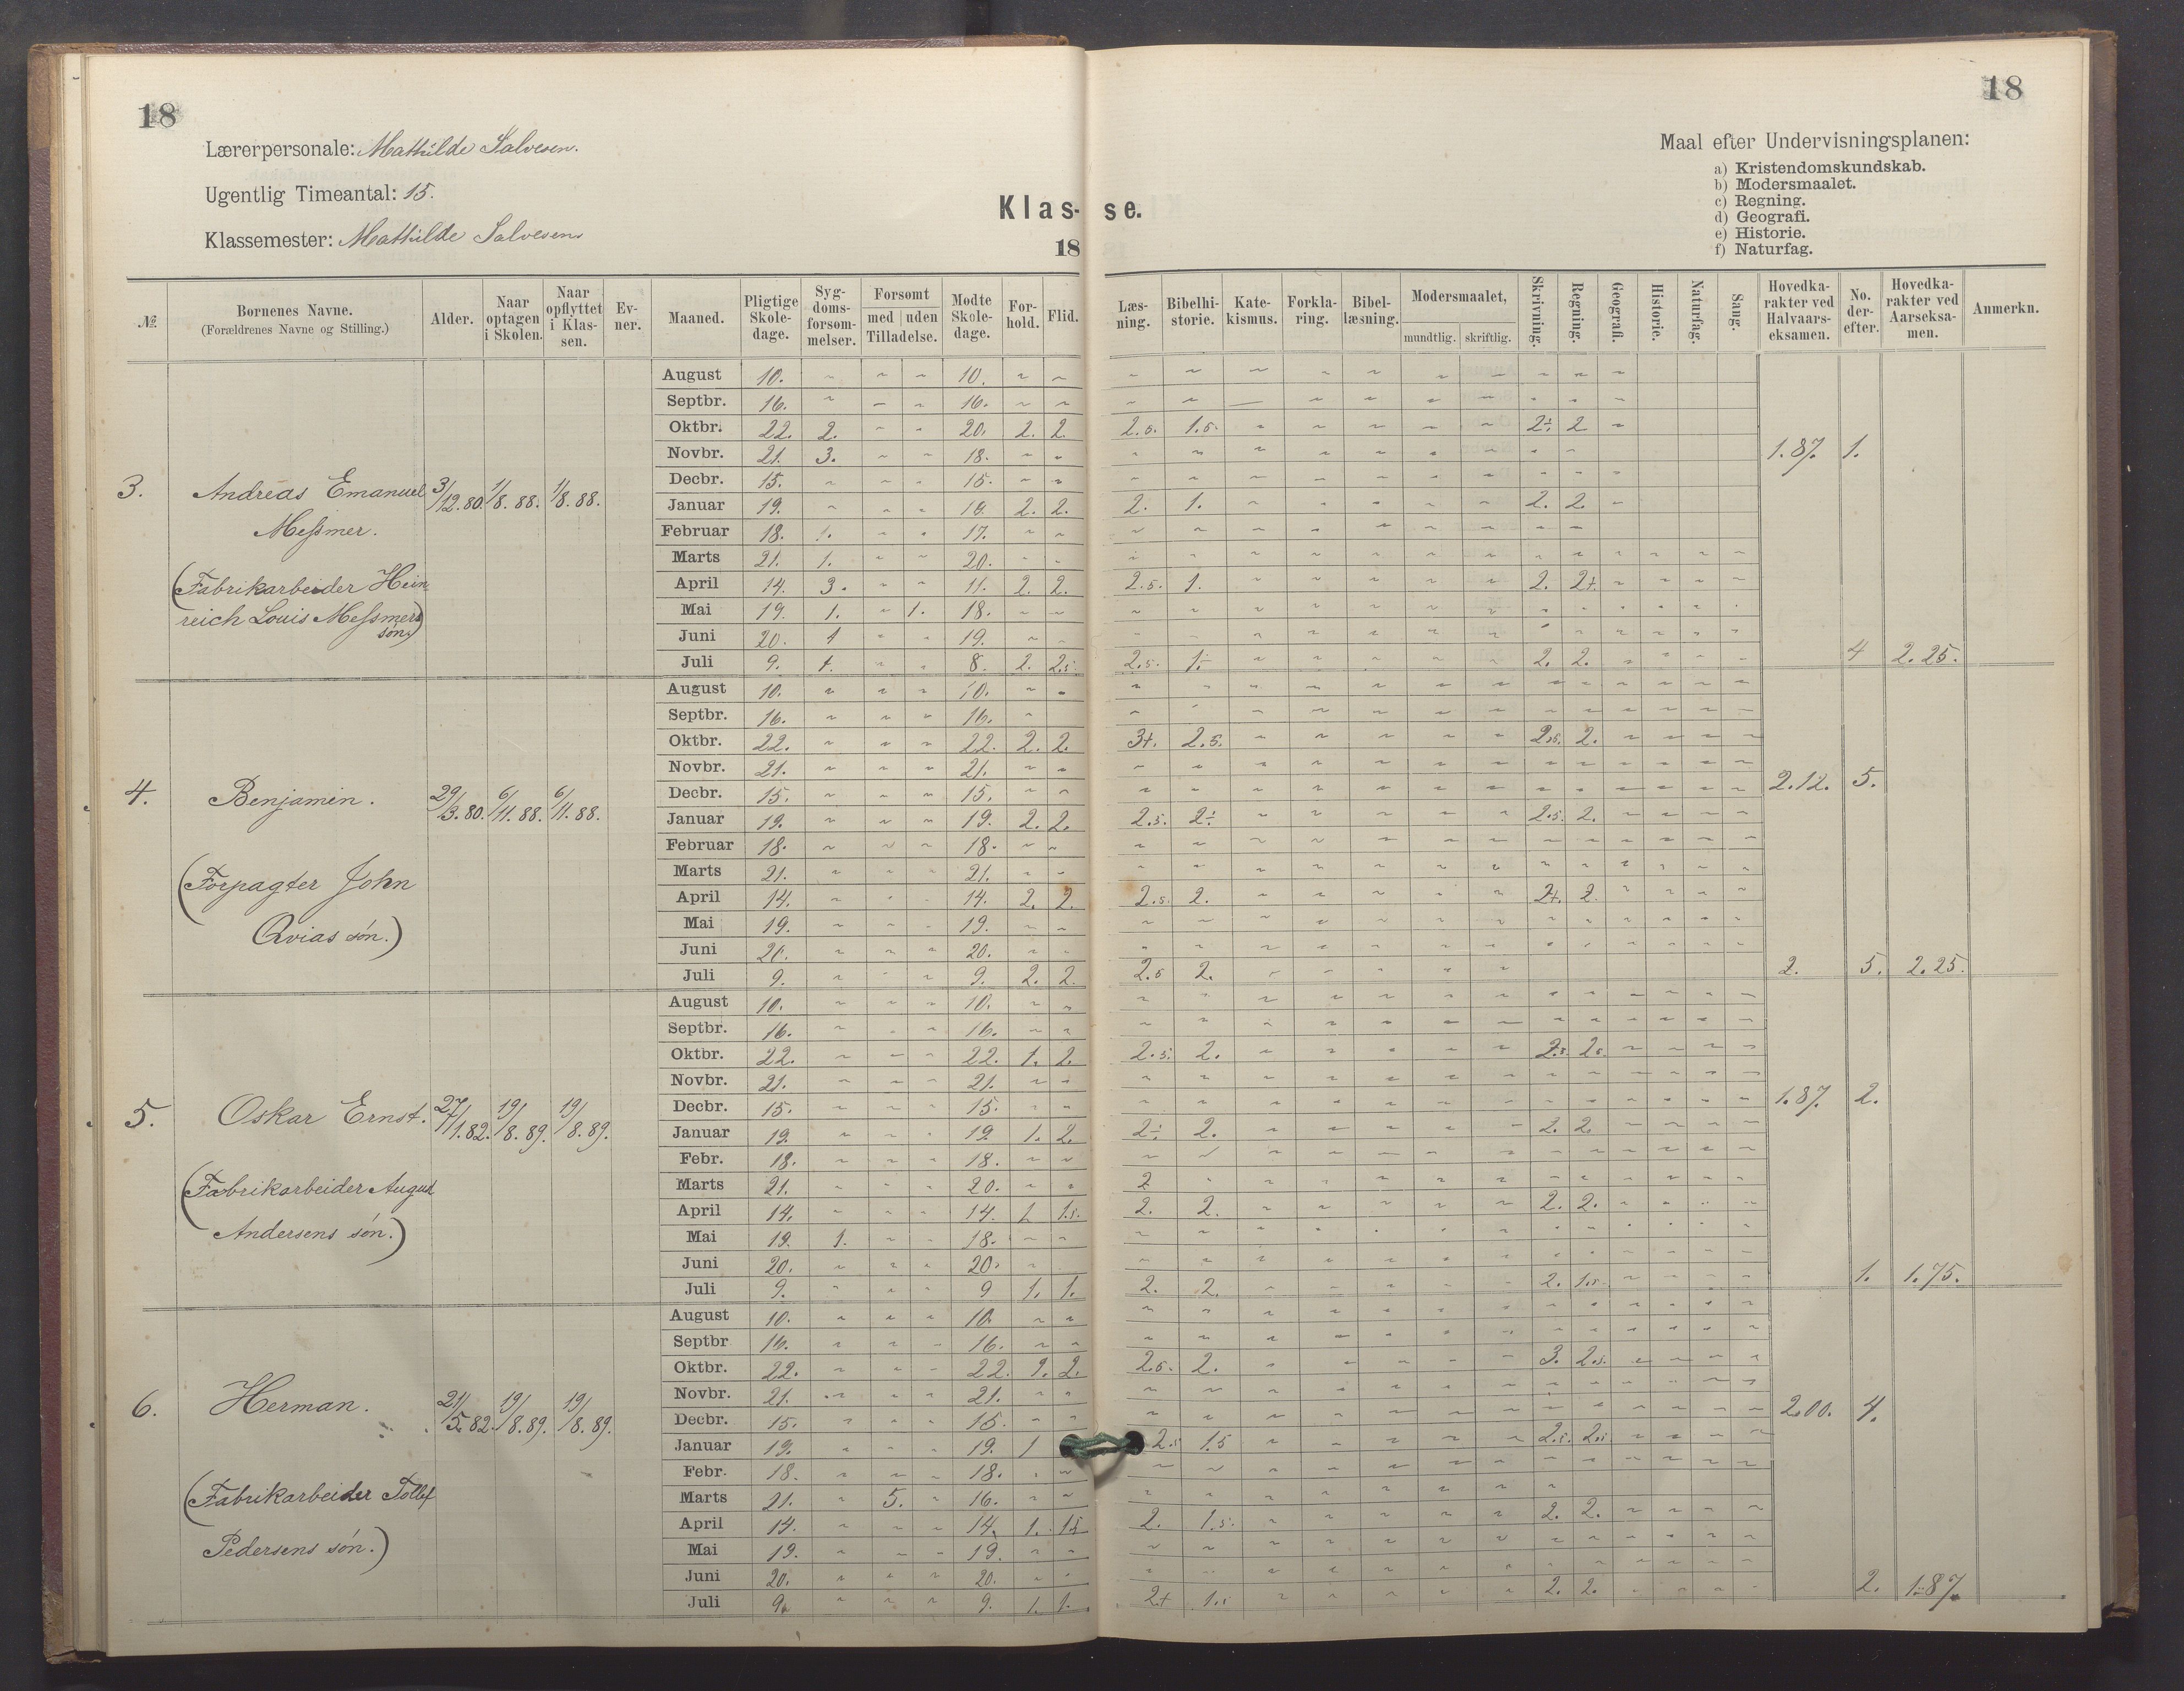 18
18
Lærerpersonale: Mathilde Salvesen.
Ugentlig Timeantal: 15.
Klassemester: Mathilde Salvesen
Klas- se.
18
Maal efter Undervisningsplanen:
a) Kristendomskundskab.
b) Modersmaalet.
c) Regning.
d) Geografi.
e) Historie.
f) Naturfag.
№ Børnenes Navne. (Forældrenes Navne og Stilling.) Alder. Naar optagen i Skolen. Naar opflyttet i Klassen. Evner. Maaned. Pligtige Skoledage. Sygdomsforsømmelser. Forsømt med uden Tilladelse. Mødte Skoledage. Forhold. Flid. Læsning. Bibelhistorie. Katekismus. Forklaring. Bibellæsning. Modersmaalet, mundtlig. skriftlig. Skrivning. Regning. Geografi. Historie. Naturfag. Sang. Hovedkarakter ved Halvaarseksamen. No. derefter. Hovedkarakter ved Aarseksamen. Anmerkn.
3. Andreas Emanuel Meſsmer. 3/12.80. 1/8.88. 1/8.88.
(Fabrikarbeider Heinreich Louis Meſsmers søn.)
August 10. 10.
Septbr. 16. 16.
Oktbr. 22. 2. 20. 2. 2. 2.5. 1.5. 2÷ 2
Novbr. 21. 3. 18. 1.87. 1.
Decbr. 15. 15.
Januar 19. 19. 2. 2. 2. 1. 2. 2.
Februar 18. 1. 17.
Marts 21. 1. 20.
April 14. 3. 11. 2. 2. 2.5. 1. 2. 2+.
Mai 19. 1. 1. 18.
Juni 20. 1 19.
Juli 9. 1. 8. 2. 2.5. 2.5. 1÷ 2. 2. 4 2.25.
4. Benjamin. 29/3.80. 6/11.88. 6/11.88.
(Forpagter John Qvias søn.)
August 10. 10.
Septbr. 16. 16.
Oktbr. 22. 22. 2. 2. 3+. 2.5. 2.5. 2.
Novbr. 21. 21.
Decbr. 15. 15. 2.12. 5.
Januar 19. 19. 2. 2. 2.5. 2÷ 2.5. 2.
Februar 18. 18.
Marts 21. 21.
April 14. 14. 2. 2. 2.5. 2. 2+. 2.
Mai 19. 19.
Juni 20. 20.
Juli 9. 9. 2. 2. 2.5 2. 2. 5. 2.25.
5. Oskar Ernst. 27/1.82. 19/8.89. 19/8.89.
(Fabrikarbeider August Andersens søn.)
August 10. 10.
Septbr. 16. 16.
Oktbr. 22. 22. 1. 2. 2.5. 2. 2.5. 2.5.
Novbr. 21. 21.
Decbr. 15. 15. 1.87. 2.
Januar 19. 19. 1. 2. 2÷ 2. 2. 2.
Febr. 18. 18.
Marts 21. 20. 2
April 14. 14. 1. 1.5. 2. 2. 2. 2.
Mai 19. 1. 18.
Juni 20. 20.
Juli 9. 9 1. 1. 2. 2. 2. 1.5. 1. 1.75.
6. Herman. 21/5.82. 19/8.89. 19/8.89.
(Fabrikarbeider Tollef Pedersens søn.)
August 10. 10.
Septbr 16. 16.
Oktbr. 22. 22. 2. 2.5. 2. 3. 2.5.
Novbr. 21. 21.
Decbr. 15. 15. 2.00. 4.
Januar 19. 19. 1 2.5 1.5 2.5. 2.5.
Febr. 18. 18.
Marts 21. 5. 16.
April 14. 14. 1. 1.5 2. 1.5. 2. 2.
Mai 19. 19.
Juni 20. 20.
Juli 9. 9. 1. 1. 2+ 1.5 2. 2. 2. 1.87.